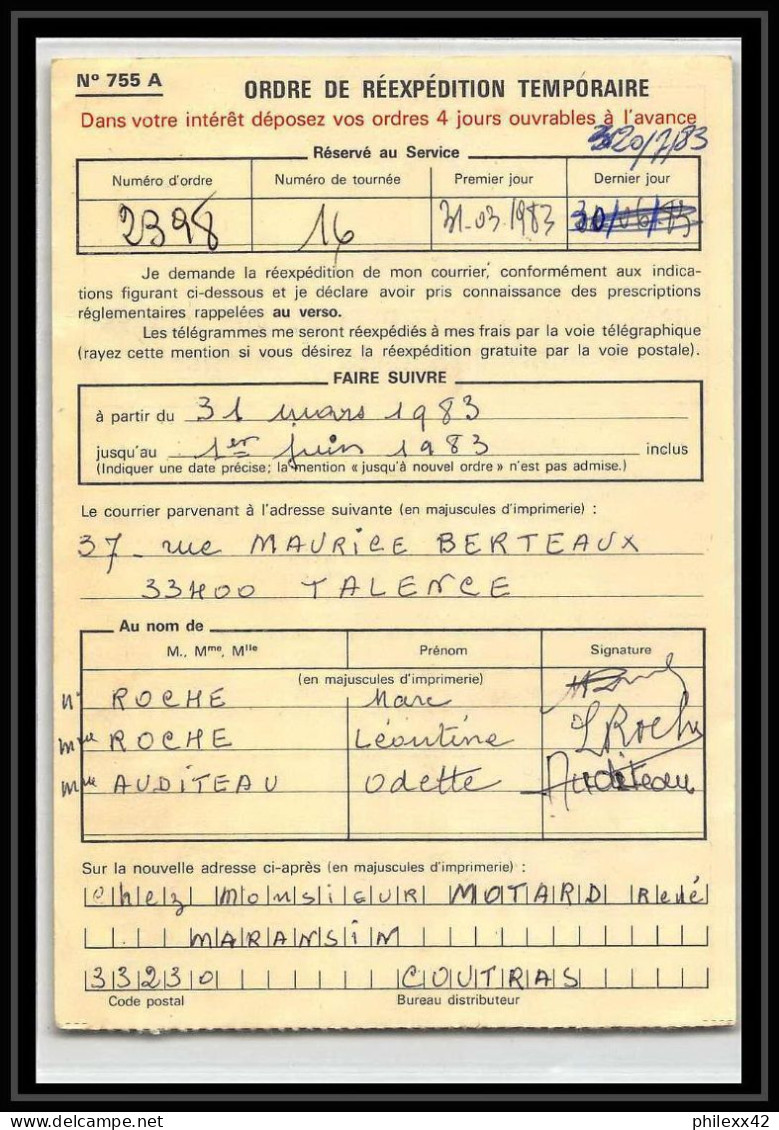 N° 755 A
ORDRE DE RÉEXPÉDITION TEMPORAIRE
Dans votre intérêt déposez vos ordres 4 jours ouvrables à l'avance
20/7/83
Réservé au Service
Numéro d'ordre Numéro de tournée Premier jour Dernier jour
2398 16 31-03-1983 30/06/83
Je demande la réexpédition de mon courrier, conformément aux indica-
tions figurant ci-dessous et je déclare avoir pris connaissance des prescriptions
réglementaires rappelées au verso.
Les télégrammes me seront réexpédiés à mes frais par la voie télégraphique
(rayez cette mention si vous désirez la réexpédition gratuite par la voie postale).
FAIRE SUIVRE
à partir du 31 mars 1983
jusqu'au 1er juin 1983 inclus
(Indiquer une date précise; la mention « jusqu'à nouvel ordre » n'est pas admise.)
Le courrier parvenant à l'adresse suivante (en majuscules d'imprimerie) :
37 - rue MAURICE BERTEAUX
33400 TALENCE
Au nom de
M., Mme, Mlle Prénom Signature
(en majuscules d'imprimerie)
Mr ROCHE Marc
Mme ROCHE Léontine LRoche
Mme AUDITEAU Odette Auditeau
Sur la nouvelle adresse ci-après (en majuscules d'imprimerie) :
chez MonsieUR MOTARD René
MARANSIN
33230 COUTRAS
Code postal Bureau distributeur
philexx42